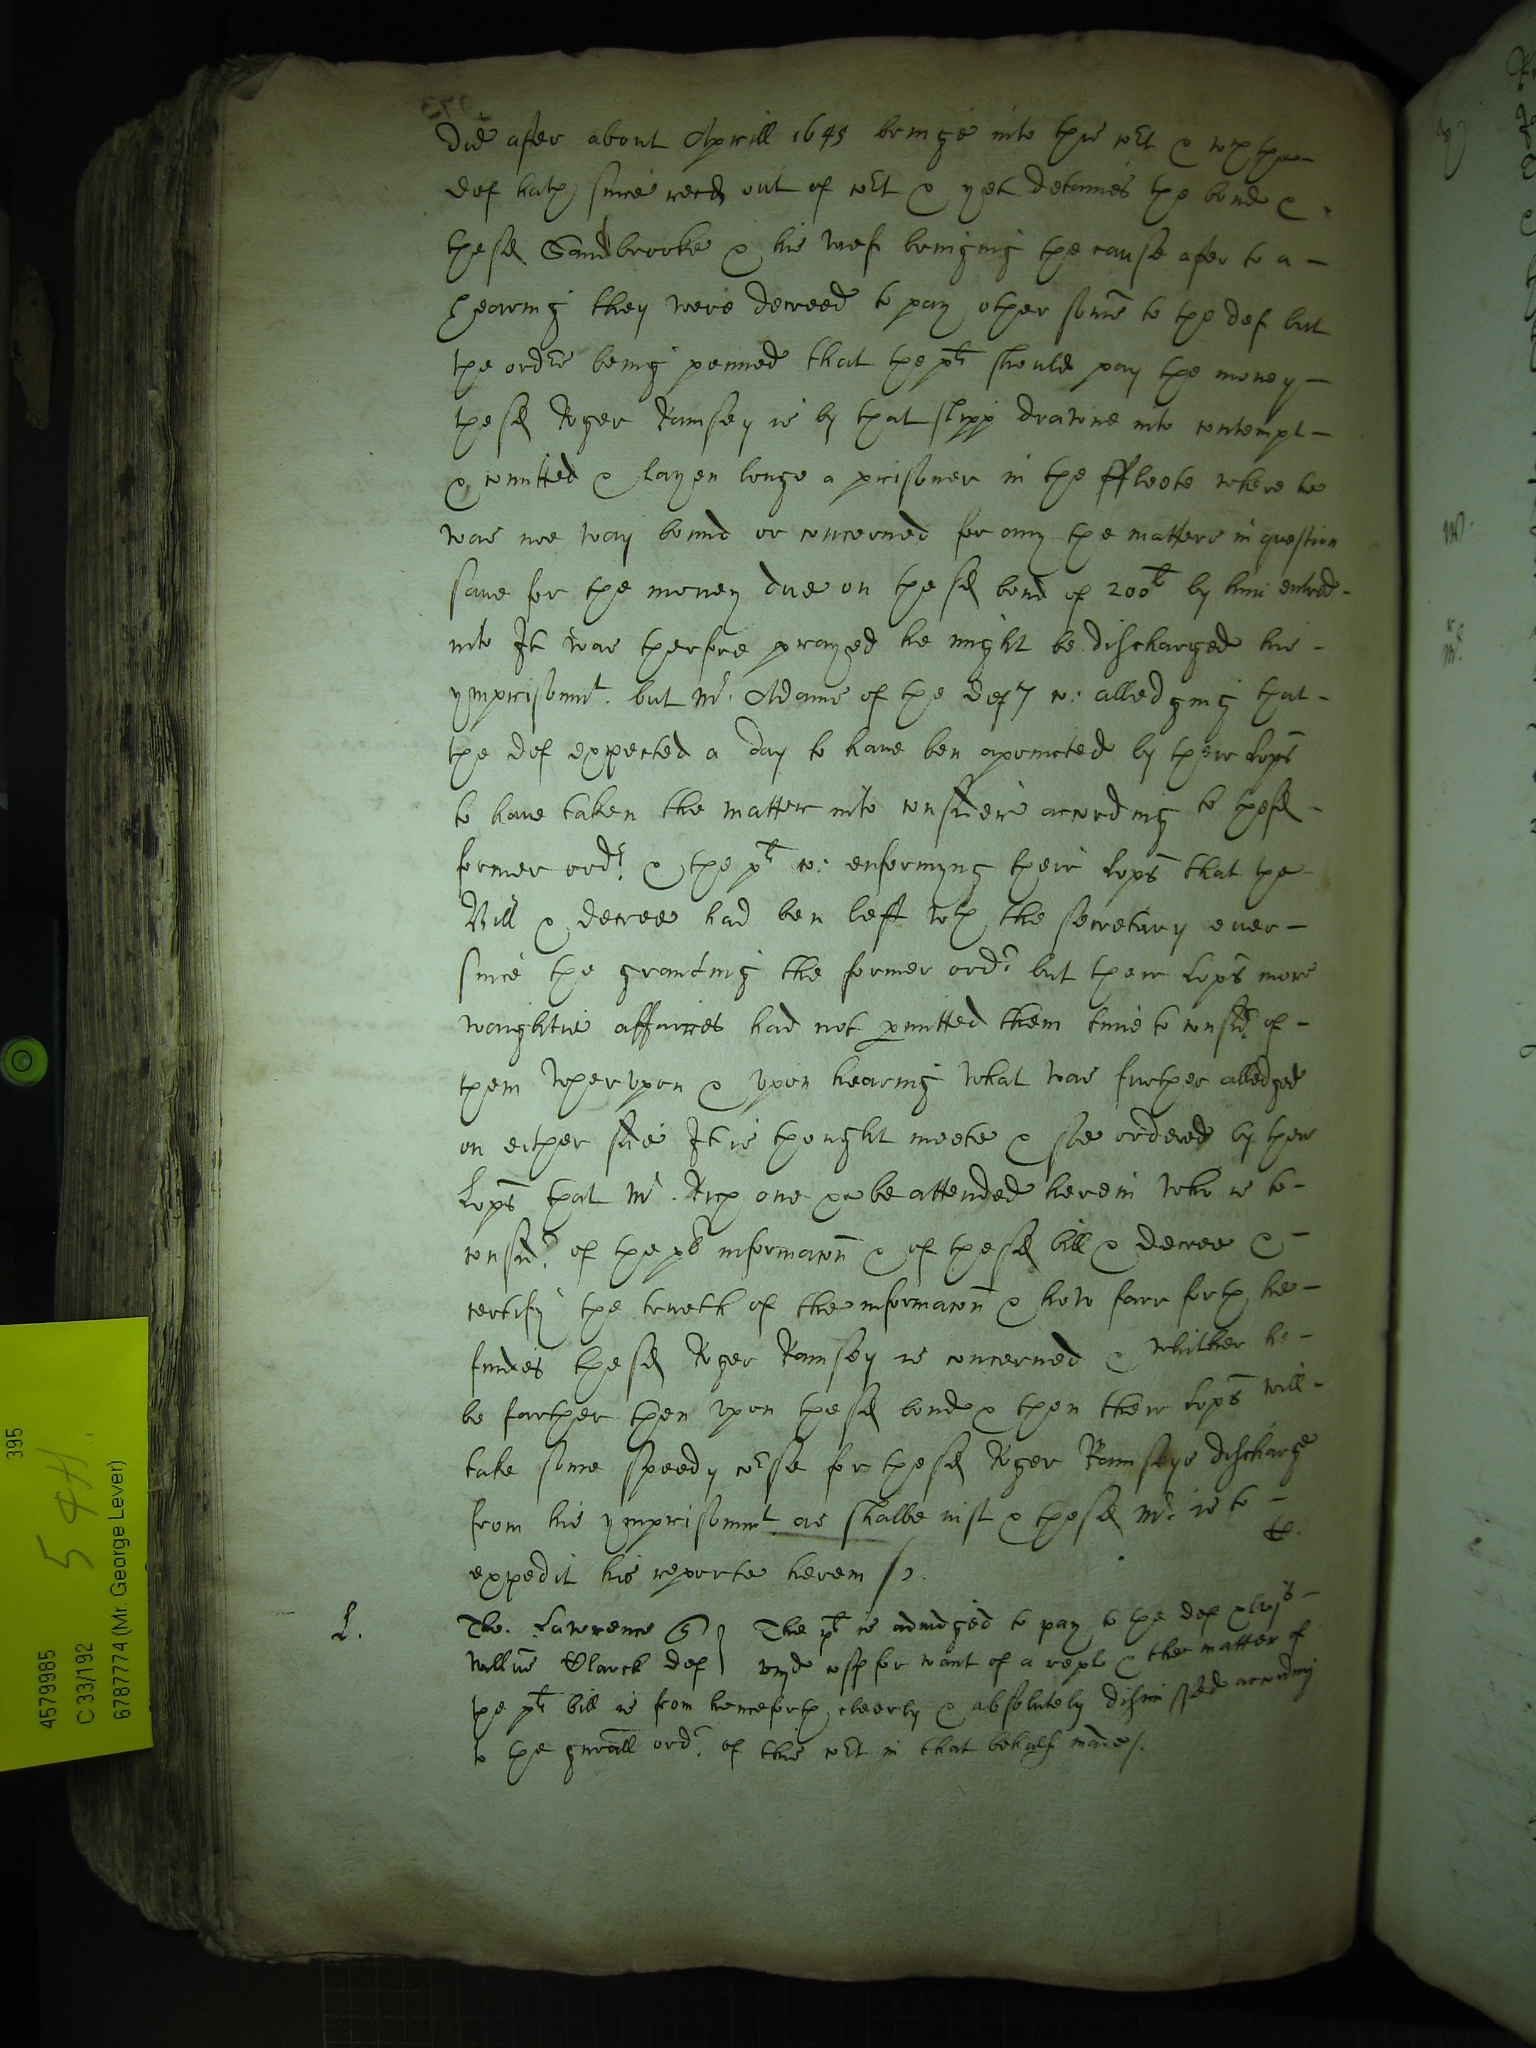 did after about Aprill 1645 bringe into this Cort & wch the
def hath since recd out of Cort & yet detaines the bond &
the sd Sandbrooke & his wief bringing the cause after to a
hearing they were decreed to pay other some to the def but
the order being penned that the pts should pay the money
the sd Roger Ramsey is by that slipp drawne into contempt
& comitted & layen longe a prisoner in the ffleete where he
was noe way bound or concerned for any the matters in question
save for the money due on the sd bond of 200l by him entred
into It was therfore prayed he might be discharged his
ymprisonmt. but Mr. Adams of the defts co: alledging that
the def expected a day to have ben apointed by their Lopps
to have taken the matter into consideracon according to the sd
former ordr & the pts co: enformyng their Lopps that the
Bill & decree had ben left wth the secretary ever
since the granting the former ordr but their Lopps more
waightie affaires had not pmitted them time to consider of
them wherupon & upon hearing what was further alledged
on either side It is thought meete & soe ordered by their
Lopps that Mr. Rich one &c be attended herein who is to
consider of the pts informacon & of the sd bill & decree &
certify the trueth of the informacon & how farr forth he
findes the sd Roger Ramsey is concerned & whither he
be farther then upon the sd bond & then their Lopps will
take some speedy course for the sd Roger Ramseys discharge
from his ymprisonmt as shalbe iust & the sd Mr. is to
expedit his reporte herein /.
L.
Tho. Lawrence q
Willm Clarck def
The pt is adiudged to pay to the def xlvjs
viijd costs for want of a repl & the matter of
the pts bill is from henceforth cleerly & absolutely dismissed according
to the gnrall ordr of this Cort in that behalf made /.
395
5 4H.
4579985
C 33/192
6787774 (Mr. George Lever)